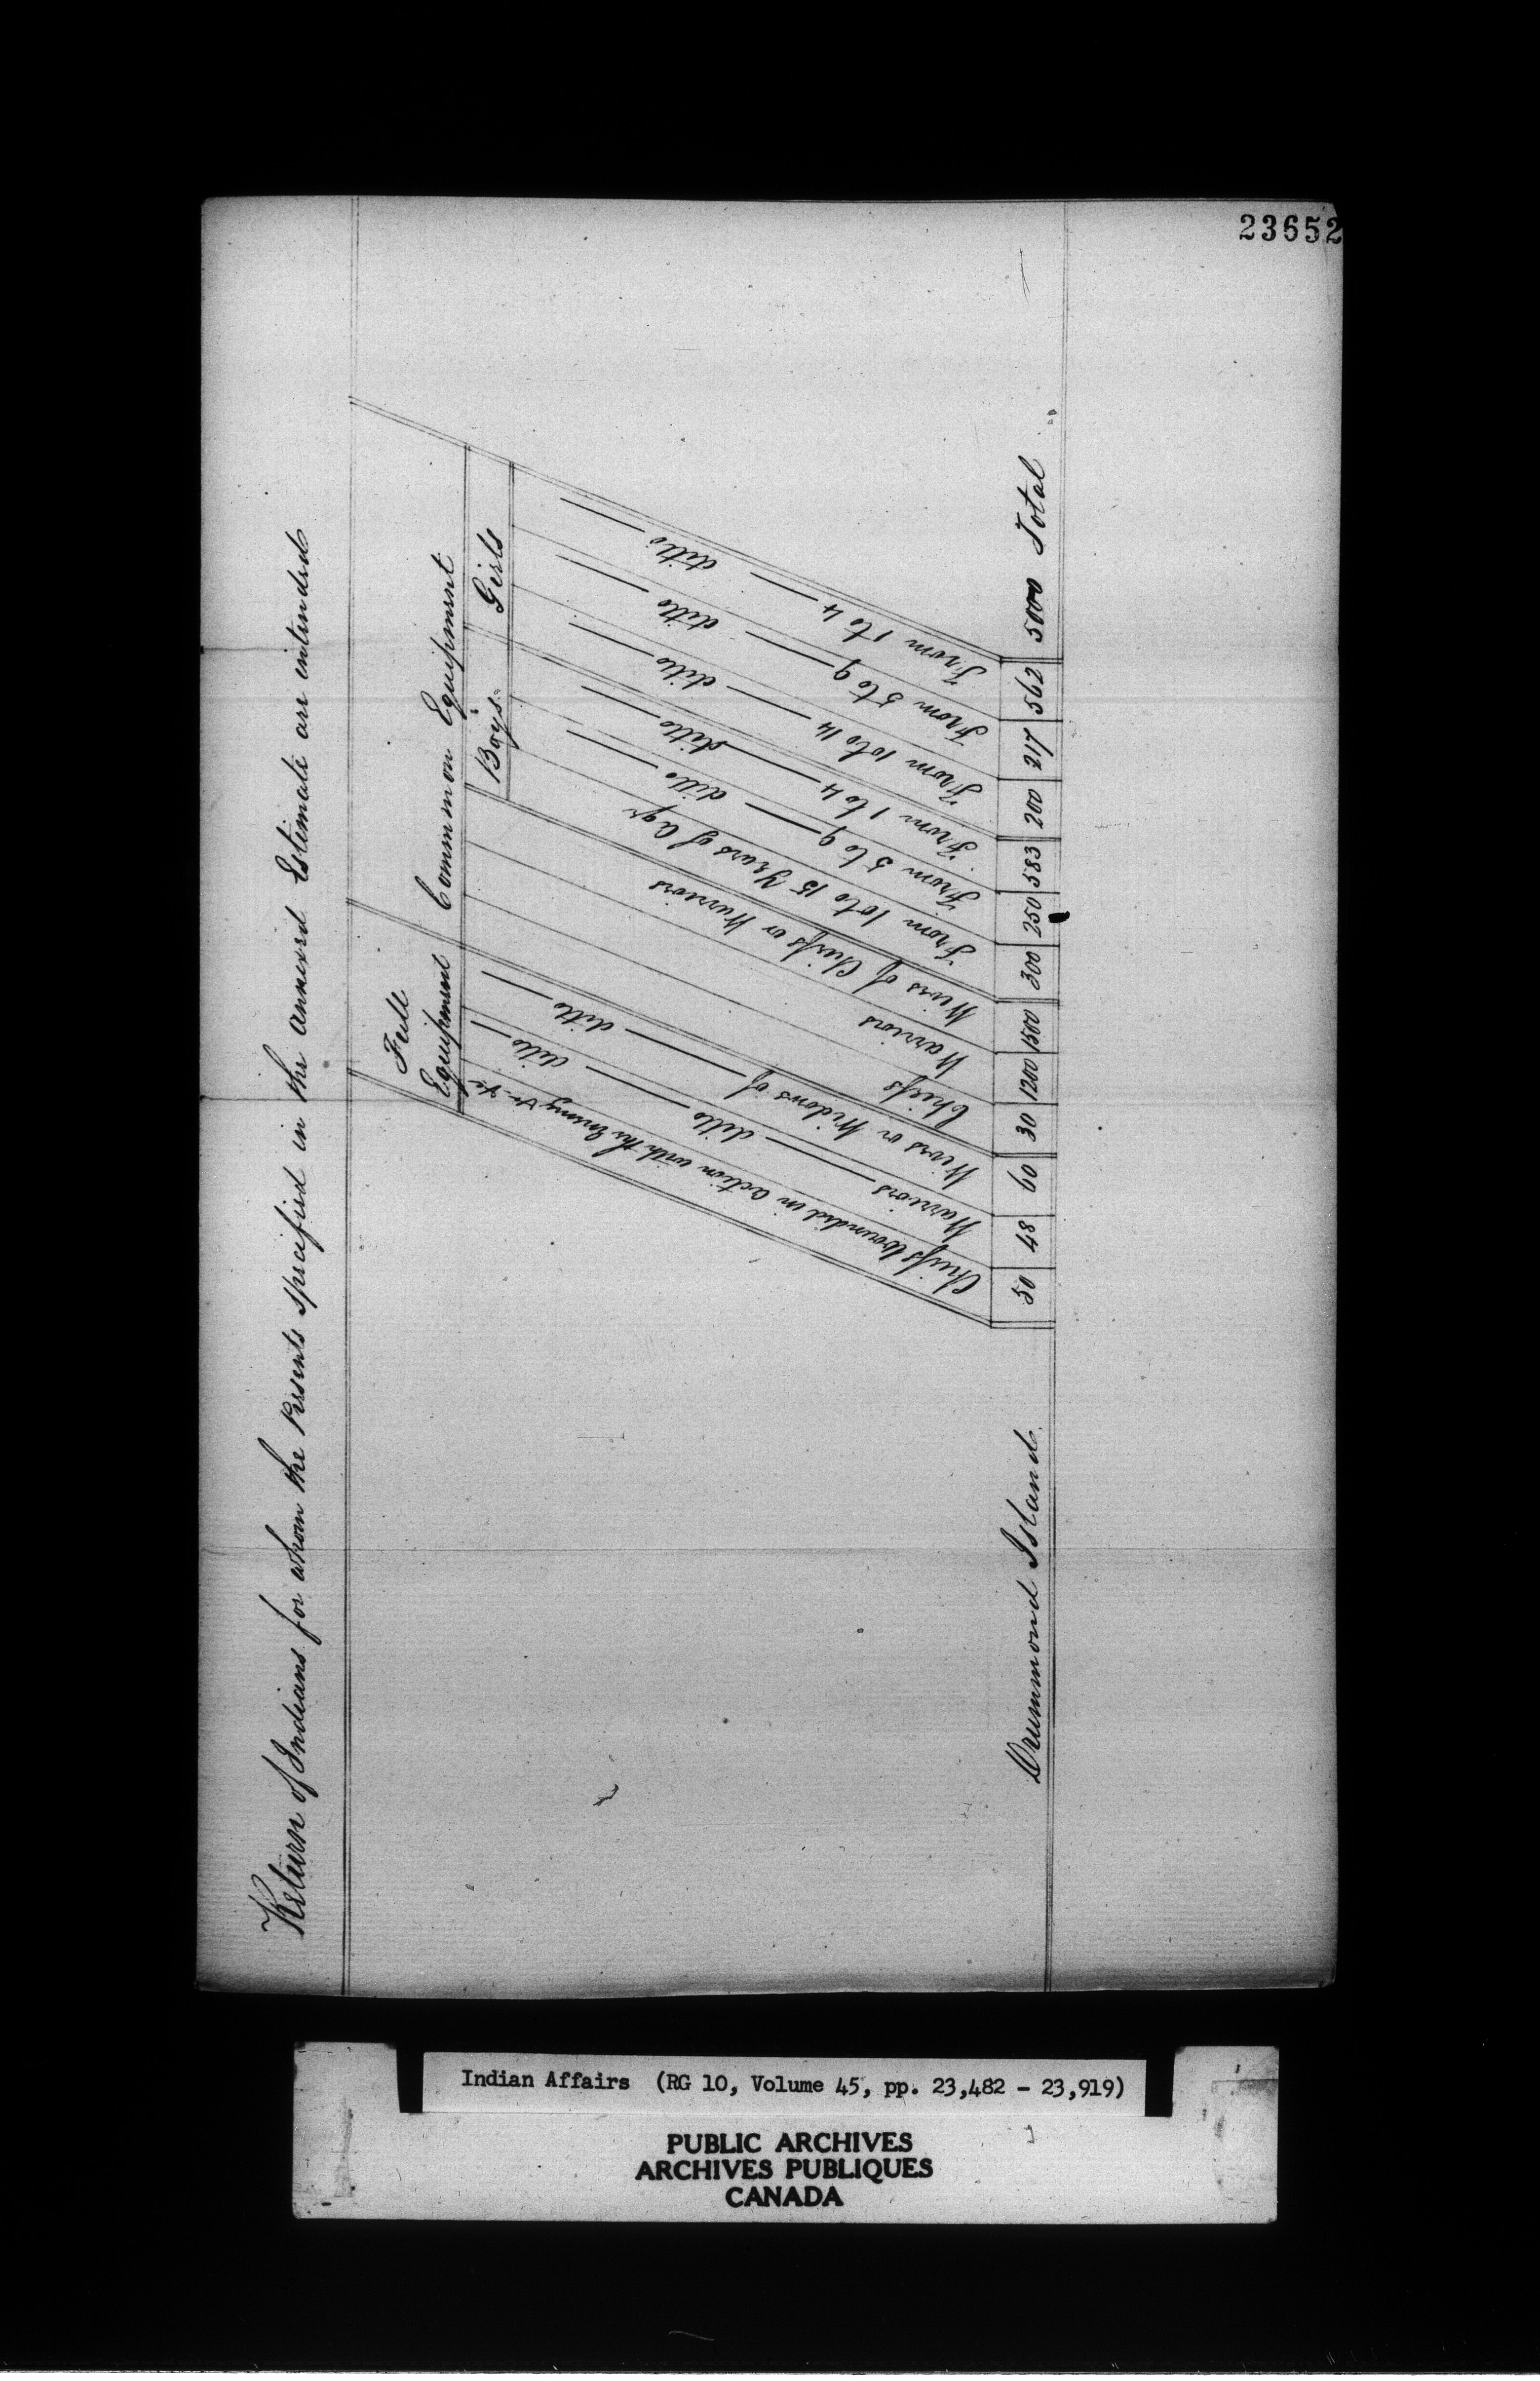 23652
Return of Indians for whom the Presents specified in the annexed Estimate are intended
Full
Equipment
Common Equipment
Boys
Girls
Chiefs Wounded in action with the Enemy &c &c
Warriors — ditto — ditto —
Wives or Widows of — ditto —
Chiefs
Warriors
Wives of Chiefs or Warriors
From 10 to 15 Years of Age
From 5 to 9 — ditto —
From 1 to 4 — ditto —
From 10 to 14 — ditto —
From 5 to 9 — ditto —
From 1 to 4 — ditto —
Drummond Island 50 48 60 30 1200 1500 300 250 583 200 217 562 5000 Total
Indian Affairs (RG 10, Volume 45, pp. 23,482 - 23,919)
PUBLIC ARCHIVES
ARCHIVES PUBLIQUES
CANADA